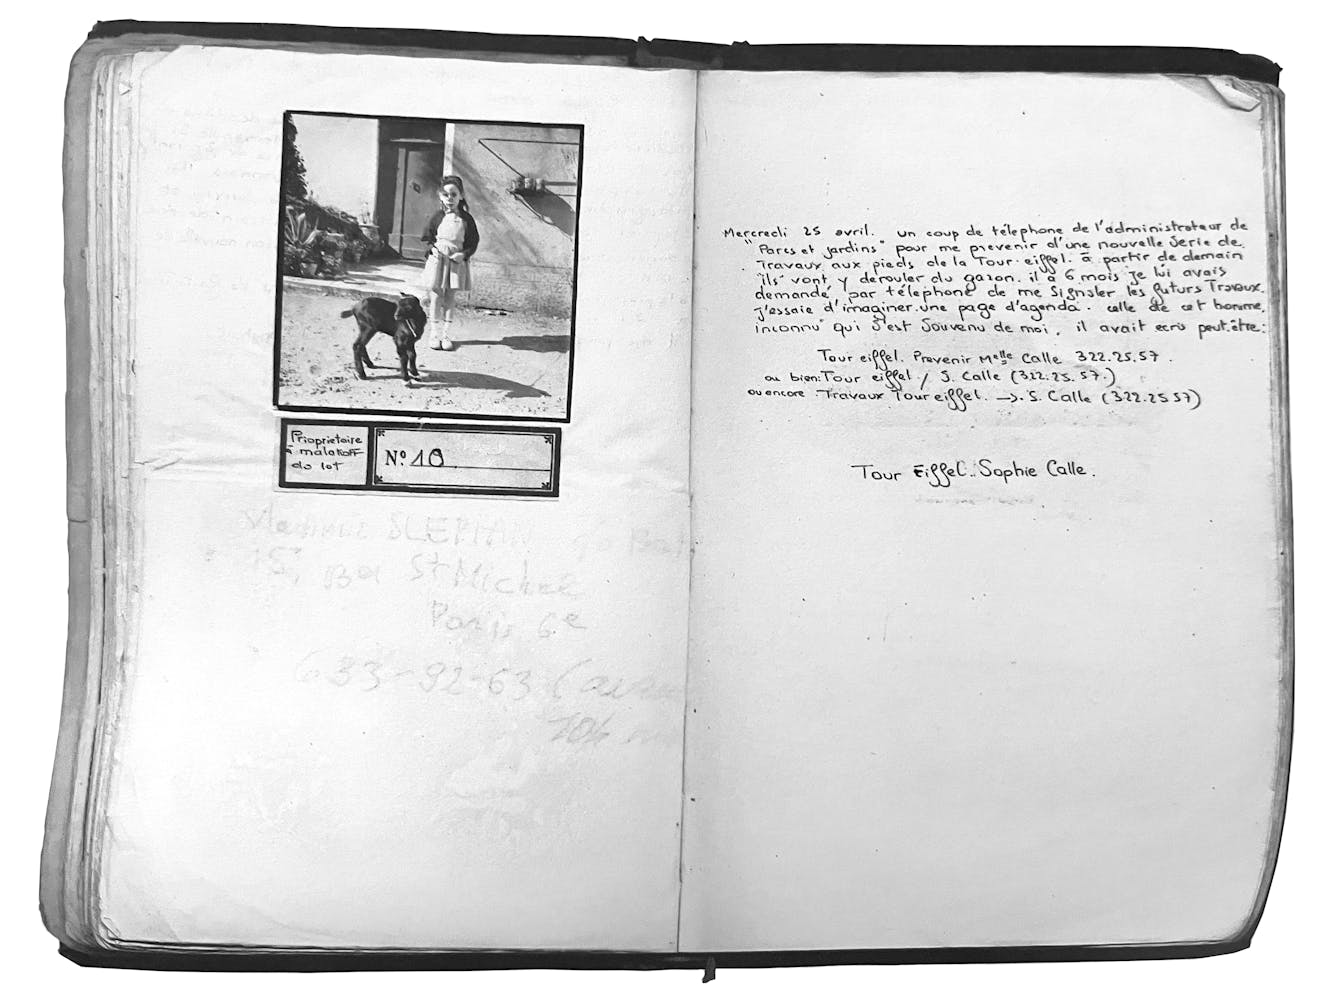 Prioprietaire
malakoff
du lot
Nº 18
Vladimir SLEPIAN
15, Bd St Michel
Paris 6e
633-92-63 (
Mercredi 25 avril. un coup de téléphone de l'administrateur de
"Parcs et jardins" pour me prevenir d'une nouvelle serie de
Travaux aux pieds de la Tour. eiffel. à partir de demain
"ils" vont y derouler du gazon. il a 6 mois je lui avais
demandé par téléphone de me signaler les futurs Travaux.
j'essaie d'imaginer une page d'agenda. celle de cet homme,
inconnu qui s'est souvenu de moi. il avait ecris peut.être:
Tour eiffel. Prevenir Melle Calle 322.25.57.
ou bien: Tour eiffel / S. Calle (322.25.57.)
ou encore Travaux Tour eiffel. —> S. Calle (322.25 57)
Tour Eiffel.. Sophie Calle.